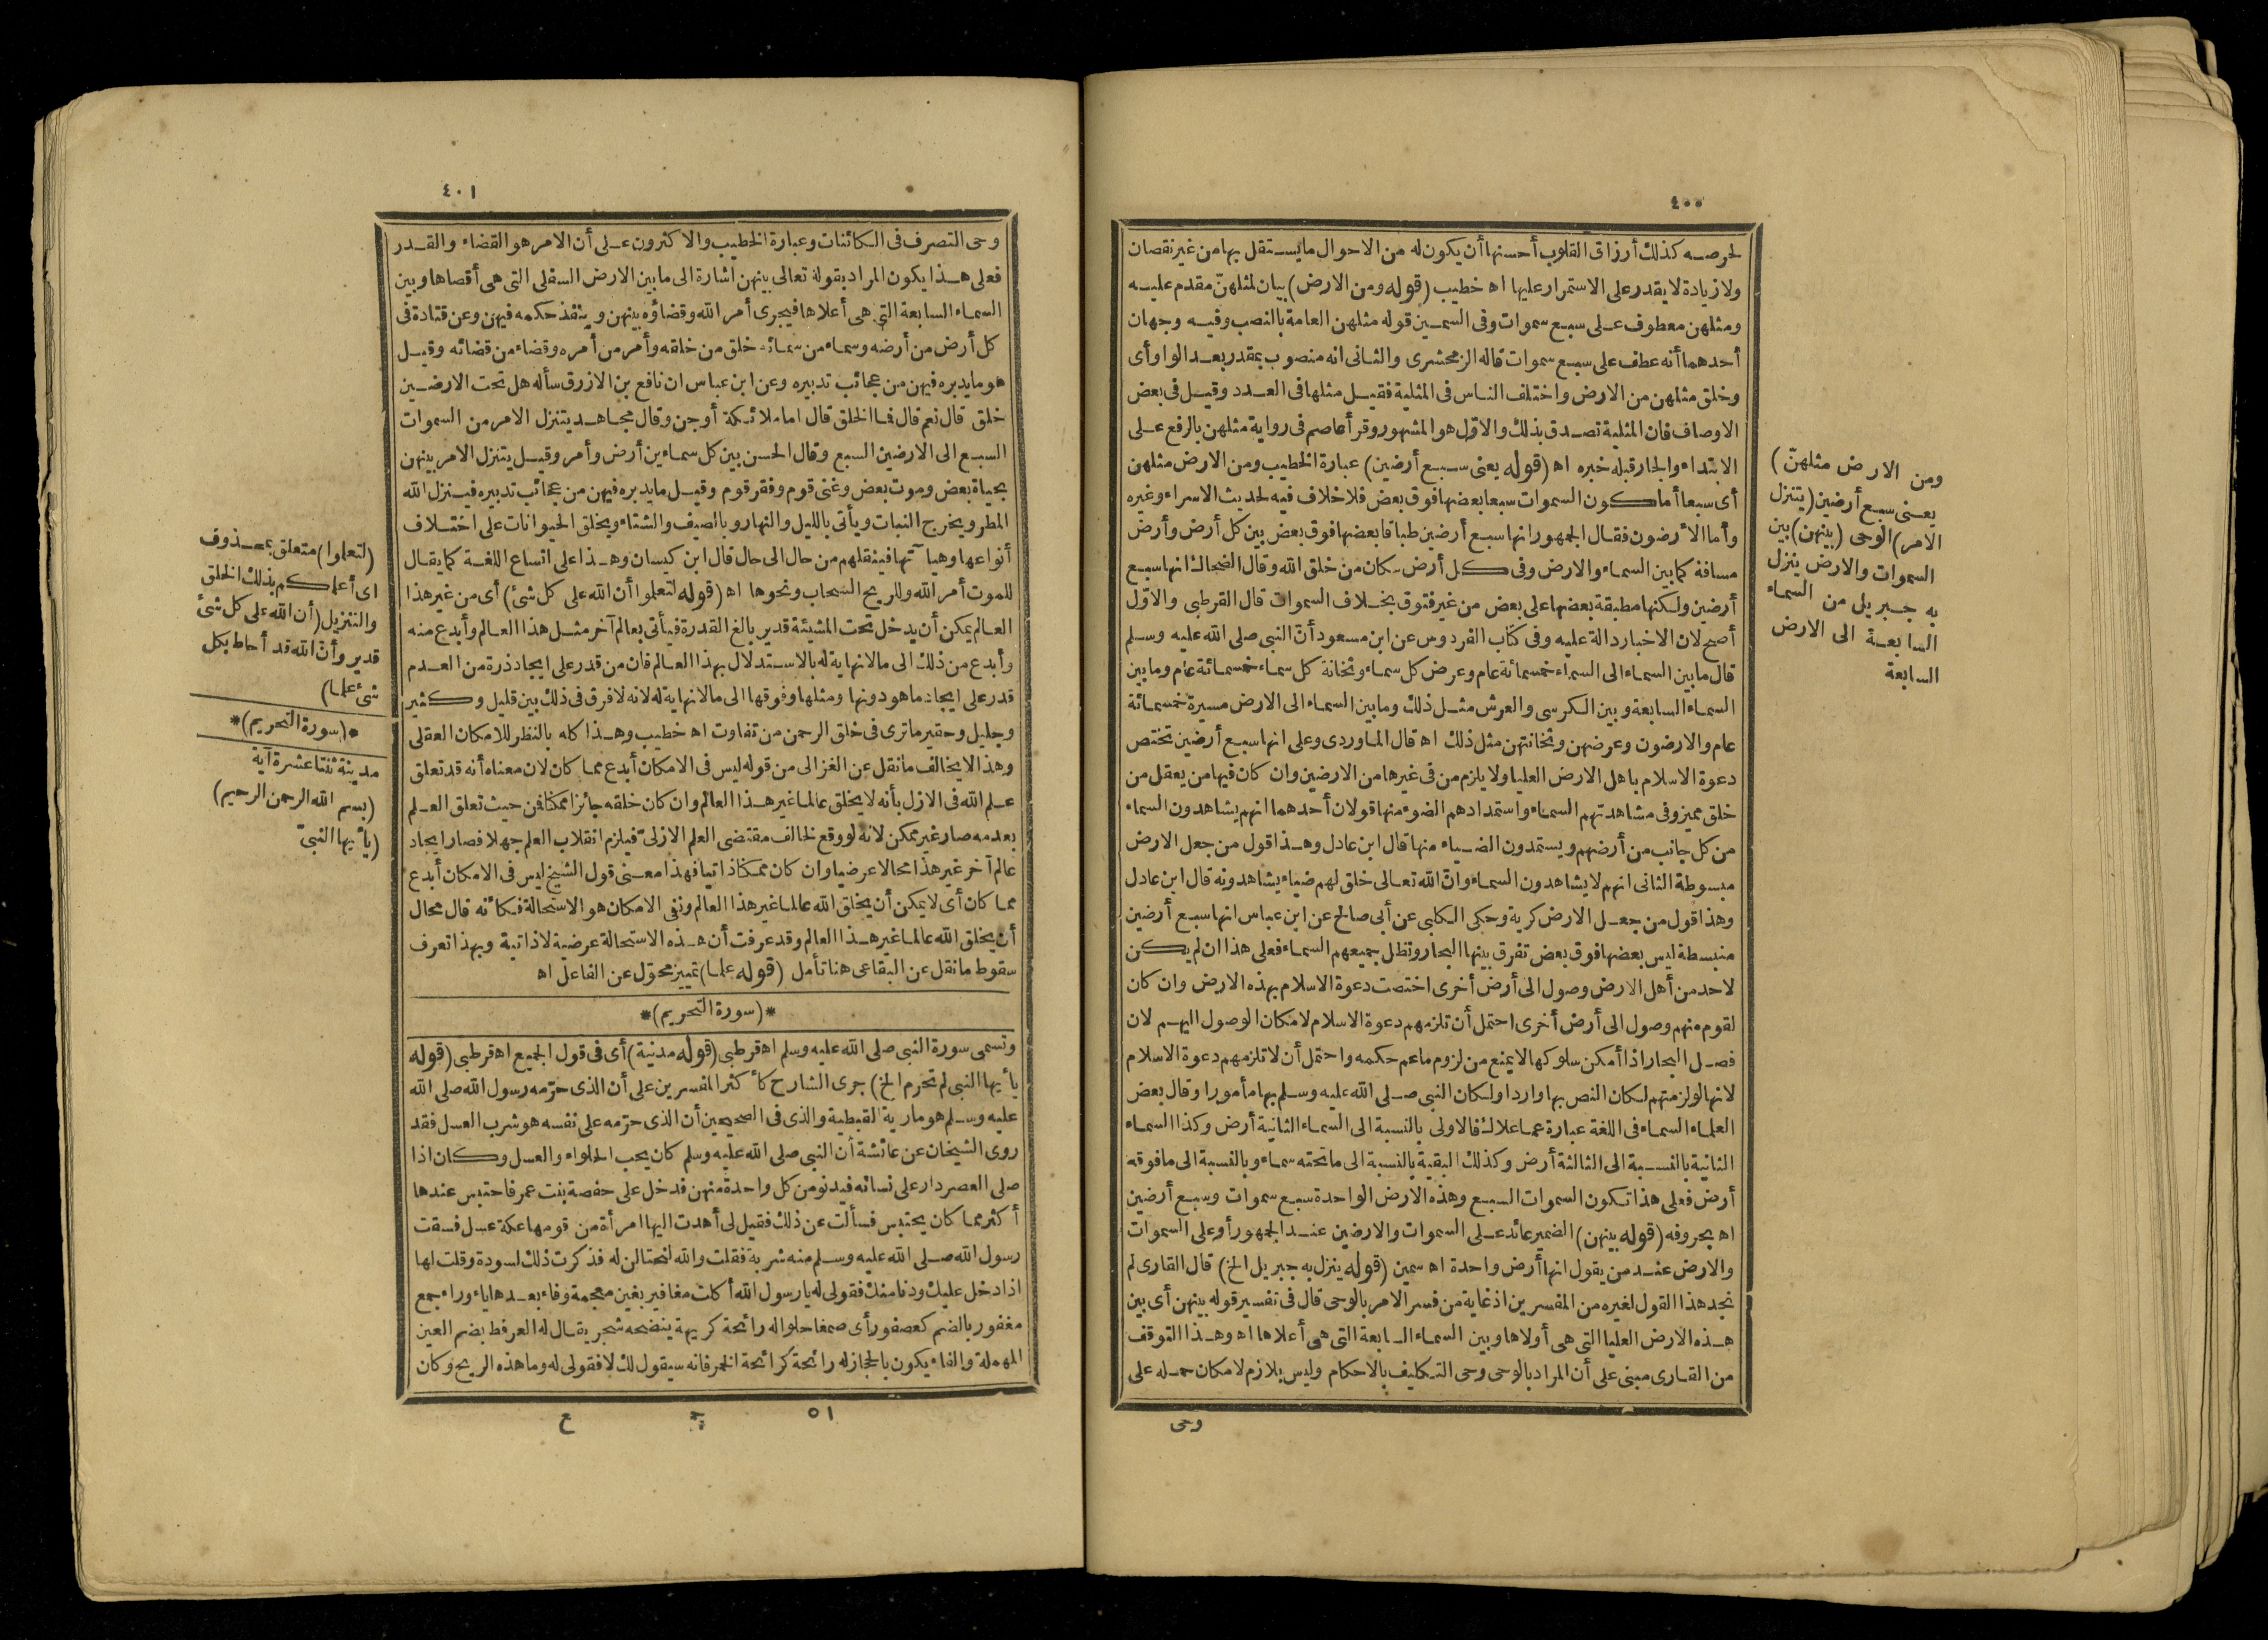 ٤٠٠
لحرصه كذلك أرزاق القلوب أحسنها أن يكون له من الاحوال ما يستقل بها من غير نقصان
ولا زيادة لا يقدر على الاستمرار عليها اه خطيب (قوله ومن الارض) بيان لمثلهنّ مقدم عليه
ومثلهن معطوف على سبع سموات وفى السمين قوله مثلهن العامة بالنصب وفيه وجهان
أحدهما أنه عطف على سبع سموات قاله الزمخشرى والثانى انه منصوب بمقدر بعد الواو أى
وخلق مثلهن من الارض واختلف الناس فى المثلية فقيل مثلها فى العدد وقيل فى بعض
الاوصاف فان المثلية تصدق بذلك والاوّل هو المشهور وقرأ عاصم فى رواية مثلهن بالرفع على
الابتداء والجار قبله خبره اه (قوله يعنى سبع أرضين) عبارة الخطيب ومن الارض مثلهن
أى سبعا أما كون السموات سبعا بعضها فوق بعض فلا خلاف فيه لحديث الاسراء وغيره
وأما الأرضون فقال الجمهور انها سبع أرضين طباقا بعضها فوق بعض بين كل أرض وأرض
مسافة كما بين السماء والارض وفى كل أرض سكان من خلق الله وقال الضحاك انها سبع
أرضين ولكنها مطبقة بعضها على بعض من غير فتوق بخلاف السموات قال القرطبى والاوّل
أصح لان الاخبار دالة عليه وفى كتاب الفردوس عن ابن مسعود أنّ النبى صلى الله عليه وسلم
قال ما بين السماء الى السماء خمسمائة عام وعرض كل سماء وثخانة كل سماء خمسمائة عام وما بين
السماء السابعة وبين الكرسى والعرش مثل ذلك وما بين السماء الى الارض مسيرة خمسمائة
عام والارضون وعرضهن وثخانتهن مثل ذلك اه قال الماوردى وعلى انها سبع أرضين تختص
دعوة الاسلام باهل الارض العليا ولا يلزم من فى غيرها من الارضين وان كان فيها من يعقل من
خلق مميز وفى مشاهدتهم السماء واستمدادهم الضوء منها قولان أحدهما انهم يشاهدون السماء
من كل جانب من أرضهم ويستمدون الضياء منها قال ابن عادل وهذا قول من جعل الارض
مبسوطة الثانى انهم لا يشاهدون السماء وانّ الله تعالى خلق لهم ضياء يشاهدونه قال ابن عادل
وهذا قول من جعل الارض كرية وحكى الكلبى عن أبى صالح عن ابن عباس انها سبع أرضين
منبسطة ليس بعضها فوق بعض تفرق بينها البحار وتظل جميعهم السماء فعلى هذا ان لم يكن
لاحد من أهل الارض وصول الى أرض أخرى اختصت دعوة الاسلام بهذه الارض وان كان
لقوم منهم وصول الى أرض أخرى احتمل أن تلزمهم دعوة الاسلام لامكان الوصول اليهم لان
فصل البحار اذا أمكن سلوكها لا يمنع من لزوم ما عم حكمه واحتمل أن لا تلزمهم دعوة الاسلام
لانها لو لزمتهم لكان النص بها واردا ولكان النبى صلى الله عليه وسلم بها مأمورا وقال بعض
العلماء السماء فى اللغة عبارة عما علاك فالاولى بالنسبة الى السماء الثانية أرض وكذا السماء
الثانية بالنسبة الى الثالثة أرض وكذلك البقية بالنسبة الى ما تحته سماء وبالنسبة الى ما فوقه
أرض فعلى هذا تكون السموات السبع وهذه الارض الواحدة سبع سموات وسبع أرضين
اه بحروفه (قوله بينهن) الضمير عائد على السموات والارضين عند الجمهور أو على السموات
والارض عند من يقول انها أرض واحدة اه سمين (قوله ينزل به جبريل الخ) قال القارى لم
نجد هذا القول لغيره من المفسرين اذ غاية من فسر الامر بالوحى قال فى تفسير قوله بينهن أى بين
هذه الارض العليا التى هى أولاها وبين السماء السابعة التى هى أعلاها اه وهذا التوقف
من القارى مبنى على أن المراد بالوحى وحى التكليف بالاحكام وليس بلازم لامكان حمله على
وحى
ومن الارض مثلهنّ)
يعنى سبع أرضين (يتنزل
الامر) الوحى (بينهن) بين
السموات والارض ينزل
به جبريل من السماء
السابعة الى الارض
السابعة
٤٠١
وحى التصرف فى الكائنات وعبارة الخطيب والاكثرون على أن الامر هو القضاء والقدر
فعلى هذا يكون المراد بقوله تعالى بينهن اشارة الى ما بين الارض السفلى التى هى أقصاها وبين
السماء السابعة التى هى أعلاها فيجرى أمر الله وقضاؤه بينهن وينفذ حكمه فيهن وعن قتادة فى
كل أرض من أرضه وسماء من سمائه خلق من خلقه وأمر من أمره وقضاء من قضائه وقيل
هو ما يدبره فيهن من عجائب تدبيره وعن ابن عباس ان نافع بن الازرق سأله هل تحت الارضين
خلق قال نعم قال فما الخلق قال اما ملائكة أو جن وقال مجاهد يتنزل الامر من السموات
السبع الى الارضين السبع وقال الحسن بين كل سماءين أرض وأمر وقيل يتنزل الامر بينهن
بحياة بعض وموت بعض وغنى قوم وفقر قوم وقيل ما يدبره فيهن من عجائب تدبيره فينزل الله
المطر ويخرج النبات ويأتى بالليل والنهار وبالصيف والشتاء ويخلق الحيوانات على اختلاف
أنواعها وهيآتها فينقلهم من حال الى حال قال ابن كيسان وهذا على اتساع اللغة كما يقال
للموت أمر الله وللريح السحاب ونحوها اه (قوله لتعلموا أن الله على كل شئ) أى من غير هذا
العالم يمكن أن يدخل تحت المشيئة قدير بالغ القدرة فيأتى بعالم آخر مثل هذا العالم وأبدع منه
وأبدع من ذلك الى ما لا نهاية له بالاستدلال بهذا العالم فان من قدر على ايجاد ذرة من العدم
قدر على ايجاد ما هو دونها ومثلها وفوقها الى ما لا نهاية له لانه لا فرق فى ذلك بين قليل وكثير
وجليل وحقير ما ترى فى خلق الرحمن من تفاوت اه خطيب وهذا كله بالنظر للامكان العقلى
وهذا لا يخالف ما نقل عن الغزالى من قوله ليس فى الامكان أبدع مما كان لان معناه أنه قد تعلق
علم الله فى الازل بأنه لا يخلق عالما غير هذا العالم وان كان خلقه جائزا ممكنا فمن حيث تعلق العلم
بعدمه صار غير ممكن لانه لو وقع لخالف مقتضى العلم الازلىّ فيلزم انقلاب العلم جهلا فصار ايجاد
عالم آخر غير هذا محالا عرضيا وان كان ممكنا ذاتيا فهذا معنى قول الشيخ ليس فى الامكان أبدع
مما كان أى لا يمكن أن يخلق الله عالما غير هذا العالم ونفى الامكان هو الاستحالة فكأنه قال محال
أن يخلق الله عالما غير هذا العالم وقد عرفت أن هذه الاستحالة عرضية لا ذاتية وبهذا تعرف
سقوط ما نقل عن البقاعى هنا تأمل (قوله علما) تمييز محوّل عن الفاعل اه
*(سورة التحريم)*
وتسمى سورة النبى صلى الله عليه وسلم اه قرطبى (قوله مدنية) أى فى قول الجميع اه قرطبى (قوله
يأيها النبى لم تحرم الخ) جرى الشارح كأكثر المفسرين على أن الذى حرّمه رسول الله صلى الله
عليه وسلم هو مارية القبطية والذى فى الصحيحين أن الذى حرّمه على نفسه هو شرب العسل فقد
روى الشيخان عن عائشة أن النبى صلى الله عليه وسلم كان يحب الحلواء والعسل وكان اذا
صلى العصر دار على نسائه فيدنو من كل واحدة منهن فدخل على حفصة بنت عمر فاحتبس عندها
أكثر مما كان يحتبس فسألت عن ذلك فقيل لى أهدت اليها امرأة من قومها عكة عسل فسقت
رسول الله صلى الله عليه وسلم منه شربة فقلت والله لنحتالن له فذكرت ذلك لسودة وقلت لها
اذا دخل عليك ودنا منك فقولى له يا رسول الله أكلت مغافير بغين معجمة وفاء بعدها ياء وراء جمع
مغفور بالضم كعصفور أى صمغا حلوا له رائحة كريهة ينضحه شجر يقال له العرفط بضم العين
المهملة والفاء يكون بالحجاز له رائحة كرائحة الخمر فانه سيقول لك لا فقولى له وما هذه الريح وكان
٥١ ج ع
(لتعلموا) متعلق بمحذوف
اى أعلمكم بذلك الخلق
والتنزيل (أن الله على كل شئ
قدير وأنّ الله قد أحاط بكل
شئ علما)
*(سورة التحريم)*
مدينة ثنتا عشرة آية
(بسم الله الرحمن الرحيم)
(يأيها النبىّ